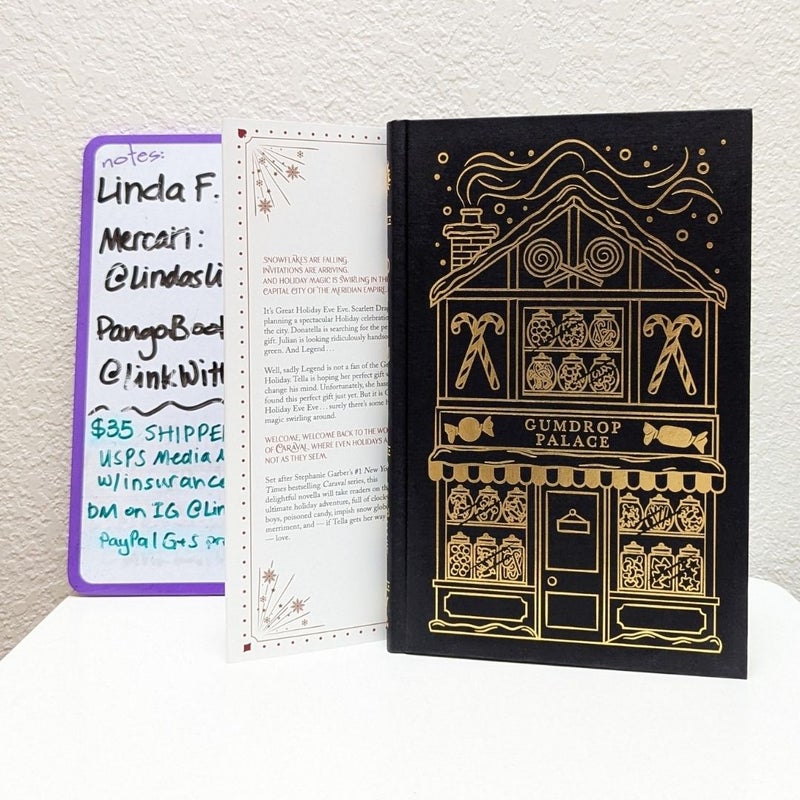 notes:
Linda F.
Mercari:
@lindasli
PangoBoo
@linkWith
$35 SHIPPE
USPS Media
w/insurance
DM on IG @Lin
PayPal G+S pr
SNOWFLAKES ARE FALLING.
INVITATIONS ARE ARRIVING.
AND HOLIDAY MAGIC IS SWIRLING IN THE
CAPITAL CITY OF THE MERIDIAN EMPIRE
It's Great Holiday Eve Eve. Scarlett Drag
planning a spectacular Holiday celebratio
the city. Donatella is searching for the pe
gift. Julian is looking ridiculously handso
green. And Legend . . .
Well, sadly Legend is not a fan of the Gr
Holiday. Tella is hoping her perfect gift w
change his mind. Unfortunately, she has
found this perfect gift just yet. But it is G
Holiday Eve Eve . . . surely there's some h
magic swirling around.
WELCOME, WELCOME BACK TO THE WO
OF CARAVAL, WHERE EVEN HOLIDAYS A
NOT AS THEY SEEM.
Set after Stephanie Garber's #1 New Yor
Times bestselling Caraval series, this
delightful novella will take readers on the
ultimate holiday adventure, full of clockw
boys, poisoned candy, impish snow glob
merriment, and — if Tella gets her way
— love.
GUMDROP
PALACE